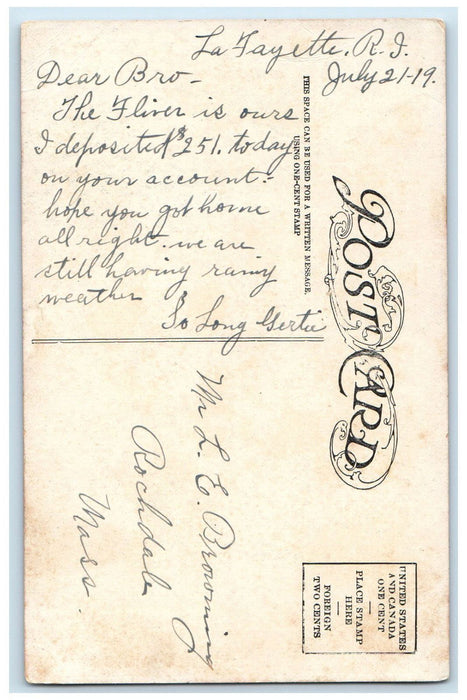 La Fayette. R. I.
July 21-19.
Dear Bro-
The Fliver is ours
I deposited $251. today
on your account:-
hope you got home
all right. we are
still having rainy
weather
So Long Gertie
THIS SPACE CAN BE USED FOR A WRITTEN MESSAGE,
USING ONE-CENT STAMP
POST CARD
Mr L. E. Browning
Rochdale
Mass.
UNITED STATES
AND CANADA
ONE CENT
PLACE STAMP
HERE
FOREIGN
TWO CENTS